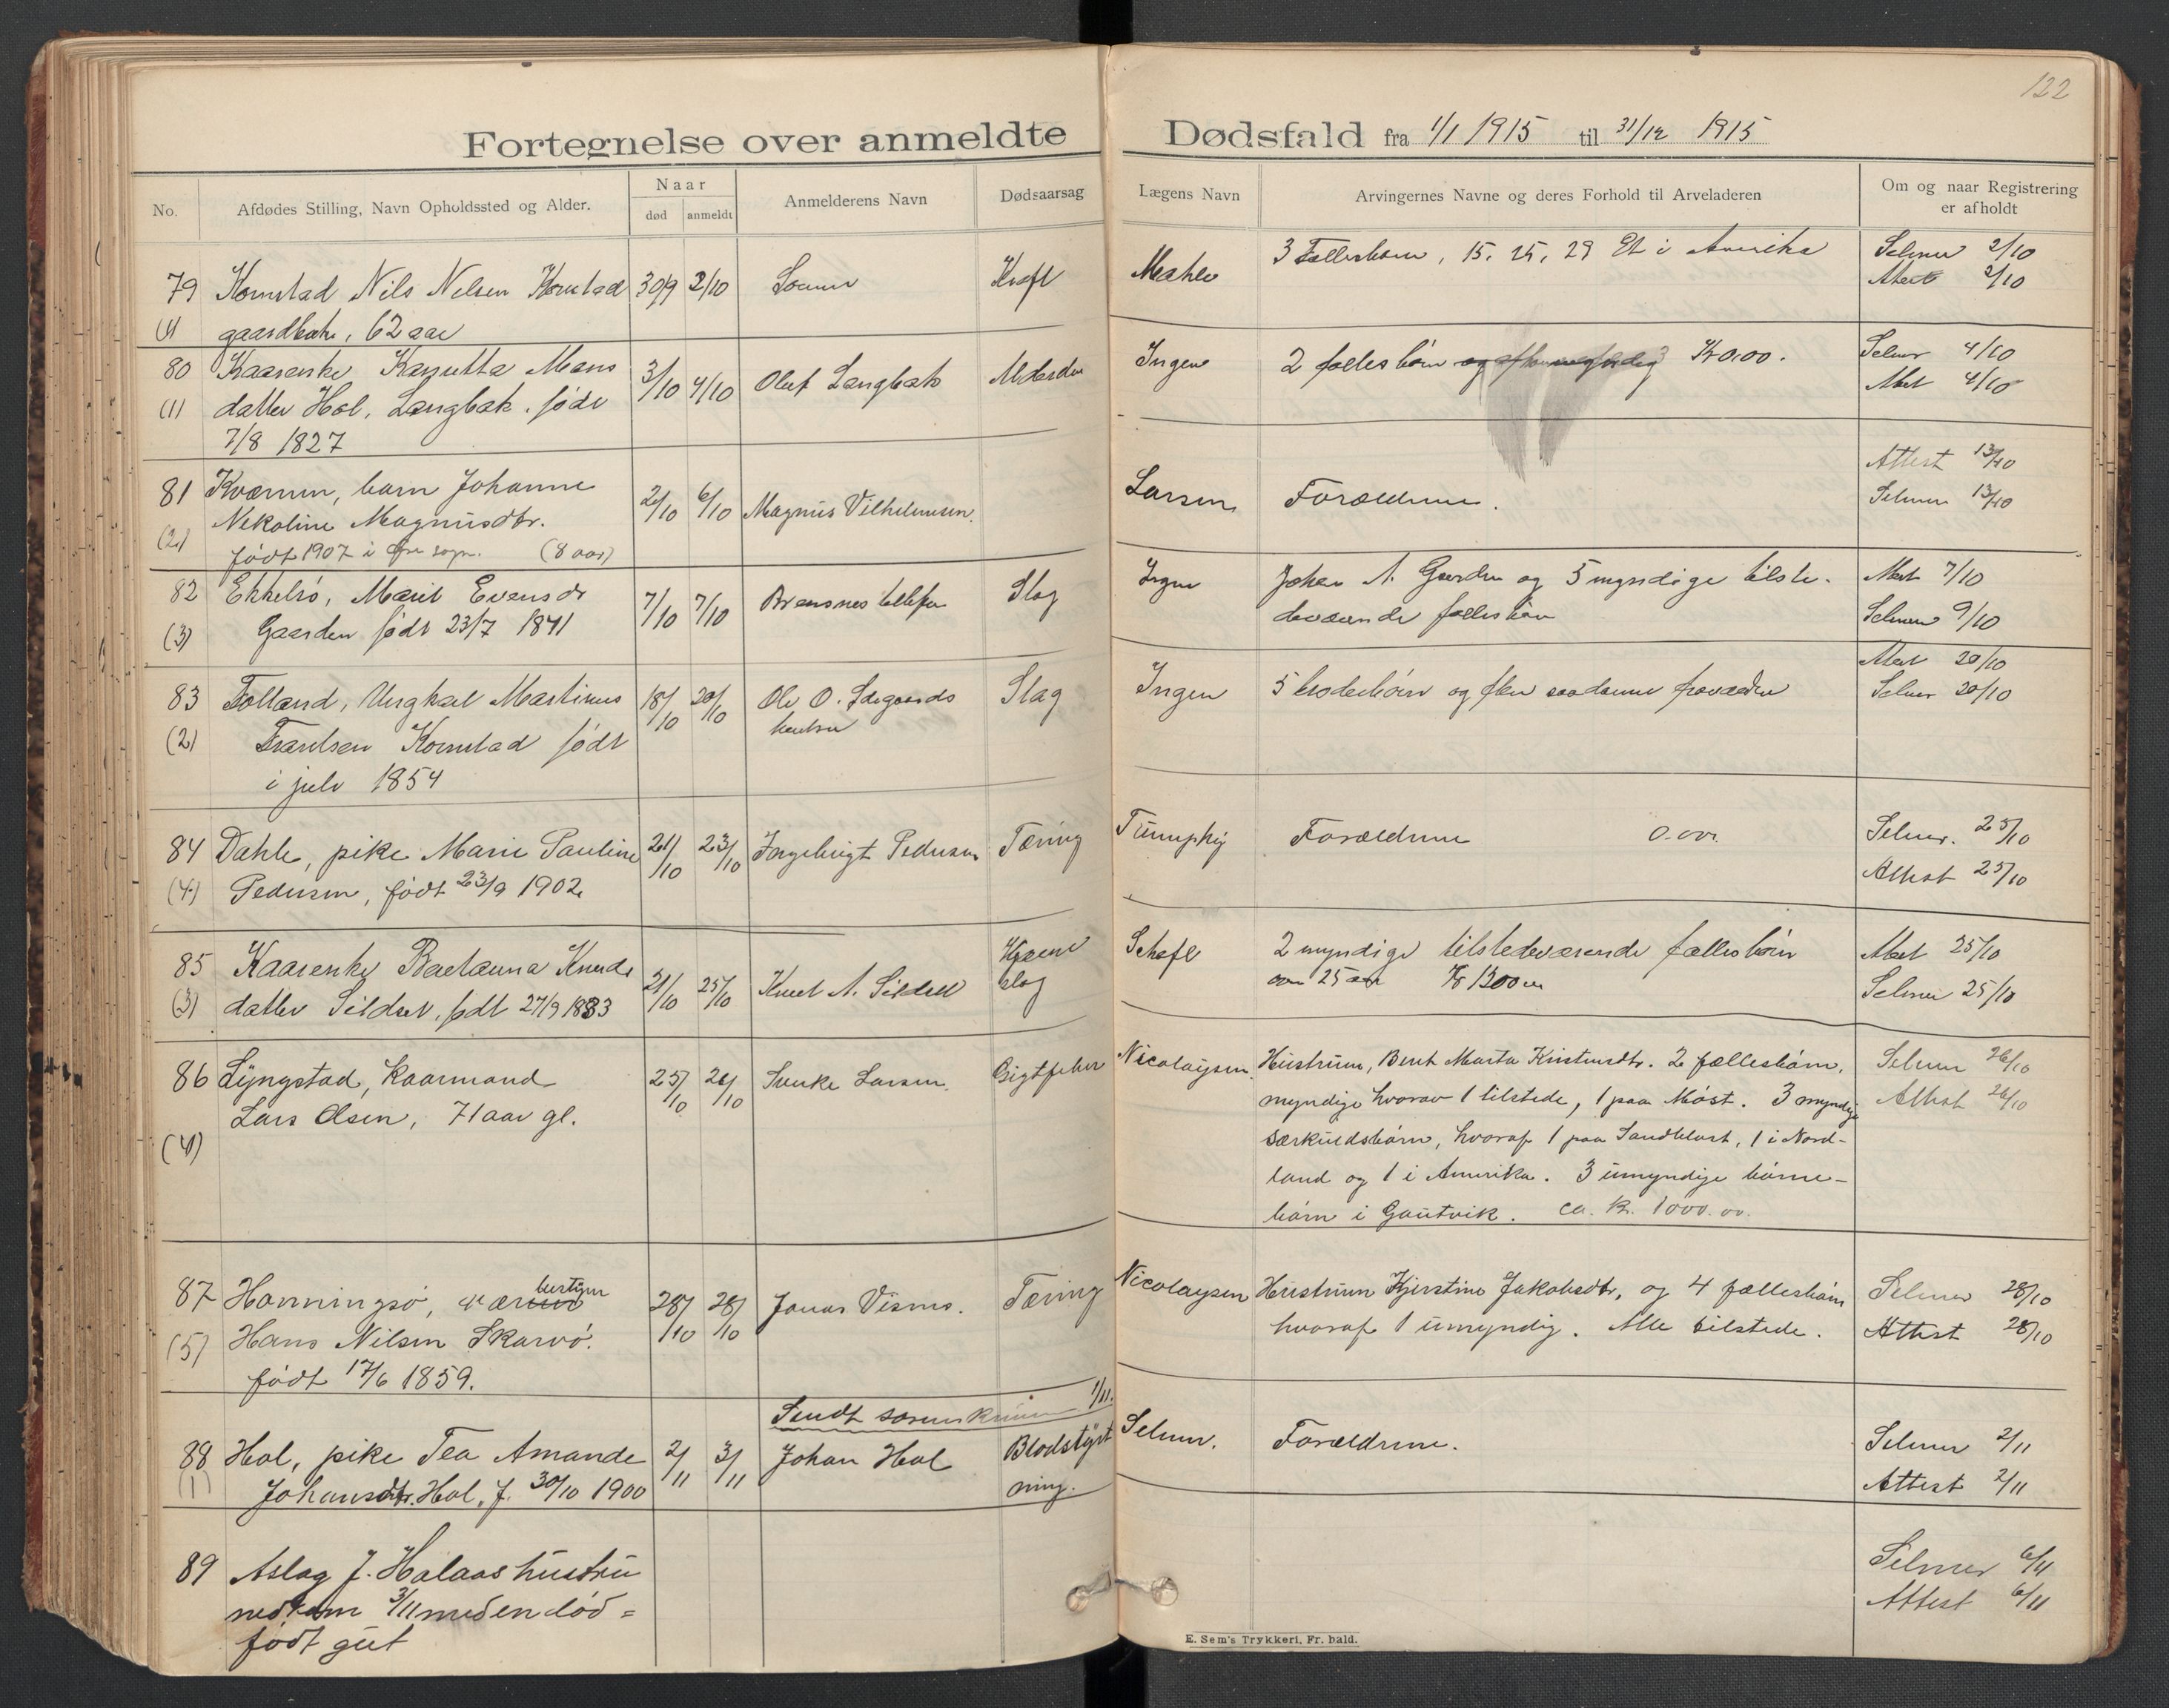 122
Fortegnelse over anmeldte Dødsfald fra 1/1 1915 til 31/12 1915
No.
Afdødes Stilling, Navn Opholdssted og Alder.
Naar
død
anmeldt
Anmelderens Navn
Dødsaarsag
Lægens Navn
Arvingernes Navne og deres Forhold til Arveladeren
Om og naar Registrering
er afholdt
79 Kornstad Nils Nilsen Kornstad 30/9 2/10 Kræft
(1) 62 aar
3 Fællesbørn, 15, 25, 29 Et i Amerika
Selmer 2/10
Attest 2/10
80 Kaarenke Hans 3/10 4/10 Oluf Langbak
(1) datter Hol, Langbak. født
7/8 1827
Ingen 2 fælles børn Kr 0.00.
Selmer 4/10
Attest 4/10
81 Kværnen, barn Johanne 2/10 6/10 Magnus Vilhelmsen.
(2) Nikoline Magnusdtr.
født 1907 i Øre sogn. (8 aar)
Larsen Forældrene.
Attest 13/10
Selmer 13/10
82 Ekkelsø, Marit Evensdr 7/10 7/10 Slag
(3) Gaarden født 23/7 1841
Ingen Johan A. Gaarden og 5 myndige tilste-
deværende fælles børn
Attest 7/10
Selmer 9/10
83 Folland, Ungkarl Martinus 18/10 20/10 Ole O. Ødegaards Slag
(2) Frantsen Kornstad født
i juli 1854
Ingen 5 broderbørn og flere saadanne fraværende
Attest 20/10
Selmer 20/10
84 Dahle, pike Marie Pauline 21/10 23/10 Ingebrigt Pedersen Tæring
(4) Pedersen, født 23/9 1902
Forældrene 0.00.
Selmer. 25/10
Attest 25/10
85 Kaarenke Knuds 21/10 25/10 Knut A. Sildset Hjerne
(3) datter Sildset, født 27/9 1833 slag
2 myndige tilstedeværende fælles børn
over 25 aar Kr 1300
Attest 25/10
Selmer 25/10
86 Lyngstad, kaarmand 25/10 26/10 Larsen Gigtfeber
Lars Olsen, 71 aar gl.
(4)
Nicolaysen. Hustruen, Berit Marta Kristensdtr. 2 fællesbørn,
myndige hvorav 1 tilstede, 1 paa Møst. 3 myndige
særkuldsbørn, hvoraf 1 paa Sandblaast, 1 i Nord-
land og 1 i Amerika. 3 umyndige børne-
børn i Gautvik. ca. kr. 1000.00.
Selmer 26/10
Attest 26/10
87 Hanningsø, 28/10 28/10 Jonas Visnes. Tæring
(5) Hans Nilsen Skarvø.
født 17/6 1859.
Nicolaysen Hustruen Kjerstine Jakobsdtr, og 4 fællesbørn
hvoraf 1 umyndig. Alle tilstede.
Selmer 28/10
Attest 28/10
Sendt sorenskriveren 1/11.
88 Hol, pike Tea Amande 2/11 3/11 Johan Hol Blodstyrt
(1) Johansdtr. Hol, f. 30/10 1900 ning.
Selmer. Forældrene.
Selmer 2/11
Attest 2/11
89 Aslag J. Holaas hustru
nedkom 3/11 med en død=
født gut
Selmer 6/11
Attest 6/11
E. Sem's Trykkeri, Fr. hald.